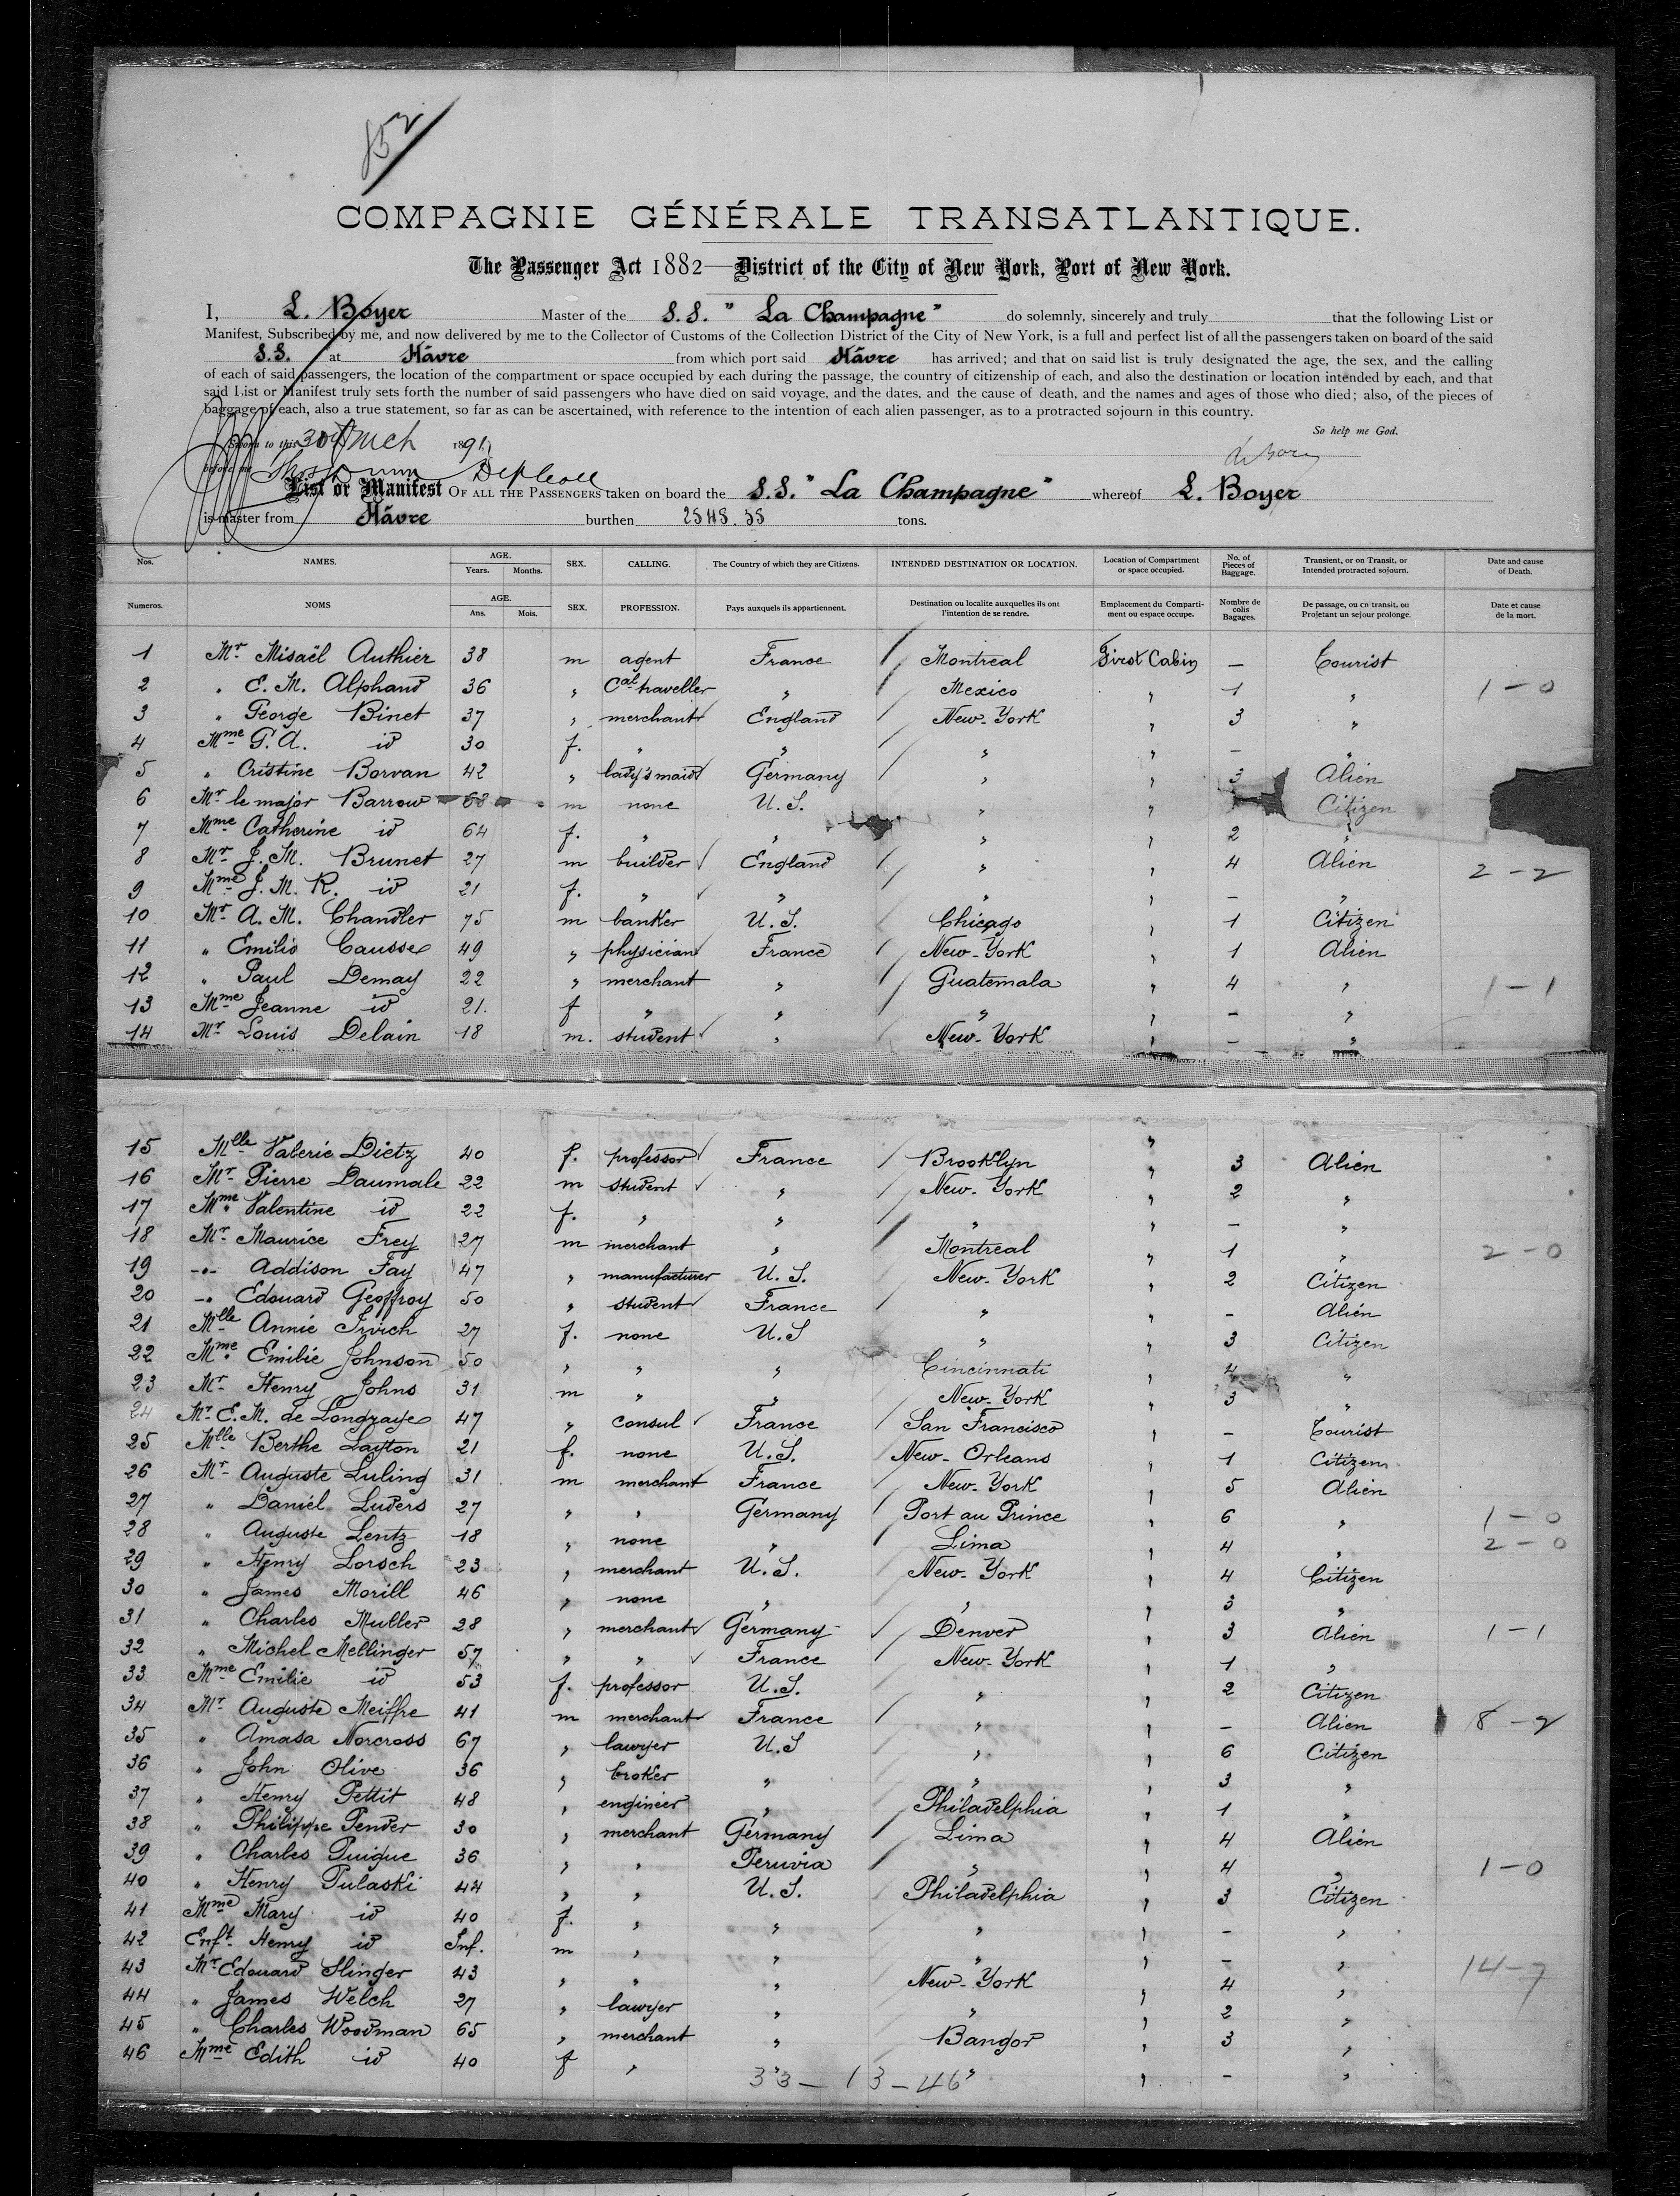 852
COMPAGNIE GÉNÉRALE TRANSATLANTIQUE.
The Passenger Act 1882—District of the City of New York, Port of New York.
I, L. Boyer Master of the S.S. " La Champagne" do solemnly, sincerely and truly that the following List or
Manifest, Subscribed by me, and now delivered by me to the Collector of Customs of the Collection District of the City of New York, is a full and perfect list of all the passengers taken on board of the said
S.S. at Hâvre from which port said Hâvre has arrived; and that on said list is truly designated the age, the sex, and the calling
of each of said passengers, the location of the compartment or space occupied by each during the passage, the country of citizenship of each, and also the destination or location intended by each, and that
said List or Manifest truly sets forth the number of said passengers who have died on said voyage, and the dates, and the cause of death, and the names and ages of those who died; also, of the pieces of
baggage of each, also a true statement, so far as can be ascertained, with reference to the intention of each alien passenger, as to a protracted sojourn in this country.
So help me God.
Sworn to this 30th Mch 1891
before me
List or Manifest OF ALL THE PASSENGERS taken on board the S.S. " La Champagne" whereof L. Boyer
is master from Hâvre burthen tons.
Nos. NAMES. AGE. Years. Months. SEX. CALLING. The Country of which they are Citizens. INTENDED DESTINATION OR LOCATION. Location of Compartment or space occupied. No. of Pieces of Baggage. Transient, or on Transit. or Intended protracted sojourn. Date and cause of Death.
Numeros. NOMS AGE. Ans. Mois. SEX. PROFESSION. Pays auxquels ils appartiennent. Destination ou localite auxquelles ils ont l'intention de se rendre. Emplacement du Compartiment ou espace occupe. Nombre de colis Bagages. De passage, ou en transit, ou Projetant un sejour prolonge. Date et cause de la mort.
1 Mr. Misaël Authier 38 m agent France / Montreal First Cabin — Tourist
2 " E. M. Alphand 36 " Cal traveller " Mexico " 1 " 1 - 0
3 " George Binet 37 " merchant England / New-York " 3 "
4 Mme G. A. id 30 f. " " / " " — "
5 " Cristine Borvan 42 " lady's maid Germany / " " 3 Alien
6 Mr. le major Barrow 68 m none U.S. " " Citizen
7 Mme Catherine id 64 f. " " " " 2 "
8 Mr. J. M. Brunet 27 m builder England / " " 4 Alien 2 - 2
9 Mme J. M. R. id 21 f. " " / " " — "
10 Mr. A. M. Chandler 75 m banker U.S. Chicago " 1 Citizen
11 " Emilio Causse 49 " physician France / New-York " 1 Alien
12 " Paul Demay 22 " merchant " Guatemala " 4 " 1 - 1
13 Mme Jeanne id 21. f " " " " - "
14 Mr. Louis Delain 18 m. student " New-York " — "
15 Mlle Valerie Dietz 40 f. professor France / Brooklyn " 3 Alien
16 Mr. Pierre Daumale 22 m student " / New-York " 2 "
17 Mme Valentine id 22 f. " " " " — "
18 Mr. Maurice Frey 27 m merchant " / Montreal " 1 " 2 - 0
19 -"- Addison Fay 47 " manufacturer U.S. New-York " 2 Citizen
20 -" Edouard Geoffroy 50 " student France / " " - Alien
21 Mlle Annie Irvich 27 f. none U.S " " 3 Citizen
22 Mme Emilie Johnson 50 " " " Cincinnati " 4 "
23 Mr. Henry Johns 31 m " " New-York " 3 "
24 Mr. E. M. de Longraye 47 " consul France / San Francisco " - Tourist
25 Mlle Berthe Layton 21 f. none U.S. New-Orleans " 1 Citizen
26 Mr. Auguste Luling 31 m merchant France / New-York " 5 Alien
27 " Daniel Luders 27 " " Germany / Port au Prince " 6 " 1 - 0
28 " Auguste Lentz 18 " none " / Lima " 4 " 2 - 0
29 " Henry Lorsch 23 " merchant U.S. New-York " 4 Citizen
30 " James Morill 46 " none " " " 3 "
31 " Charles Muller 28 " merchant Germany / Denver " 3 Alien 1 - 1
32 " Michel Mellinger 57 " " France / New-York " 1 "
33 Mme Emilie id 53 f. professor U.S. " " 2 Citizen
34 Mr. Auguste Meiffre 41 m merchant France / " " — Alien 8 - 2
35 " Amasa Norcross 67 " lawyer U.S " " 6 Citizen
36 " John Olive 36 " broker " " " 3 "
37 " Henry Pettit 48 " engineer " Philadelphia " 1 "
38 " Philippe Pender 30 " merchant Germany / Lima " 4 Alien
39 " Charles Puigue 36 " " Peruvia / " " 4 " 1 - 0
40 " Henry Pulaski 44 " " U.S. Philadelphia " 3 Citizen
41 Mme Mary id 40 f. " " " " - "
42 Enft. Henry id Inf. m " " " " - "
43 Mr. Edouard Slinger 43 " " " New-York " 4 " 14 - 7
44 " James Welch 27 " lawyer " " " 2 "
45 " Charles Woodman 65 " merchant " Bangor " 3 "
46 Mme Edith id 40 f " " " " - "
33 — 13 — 46